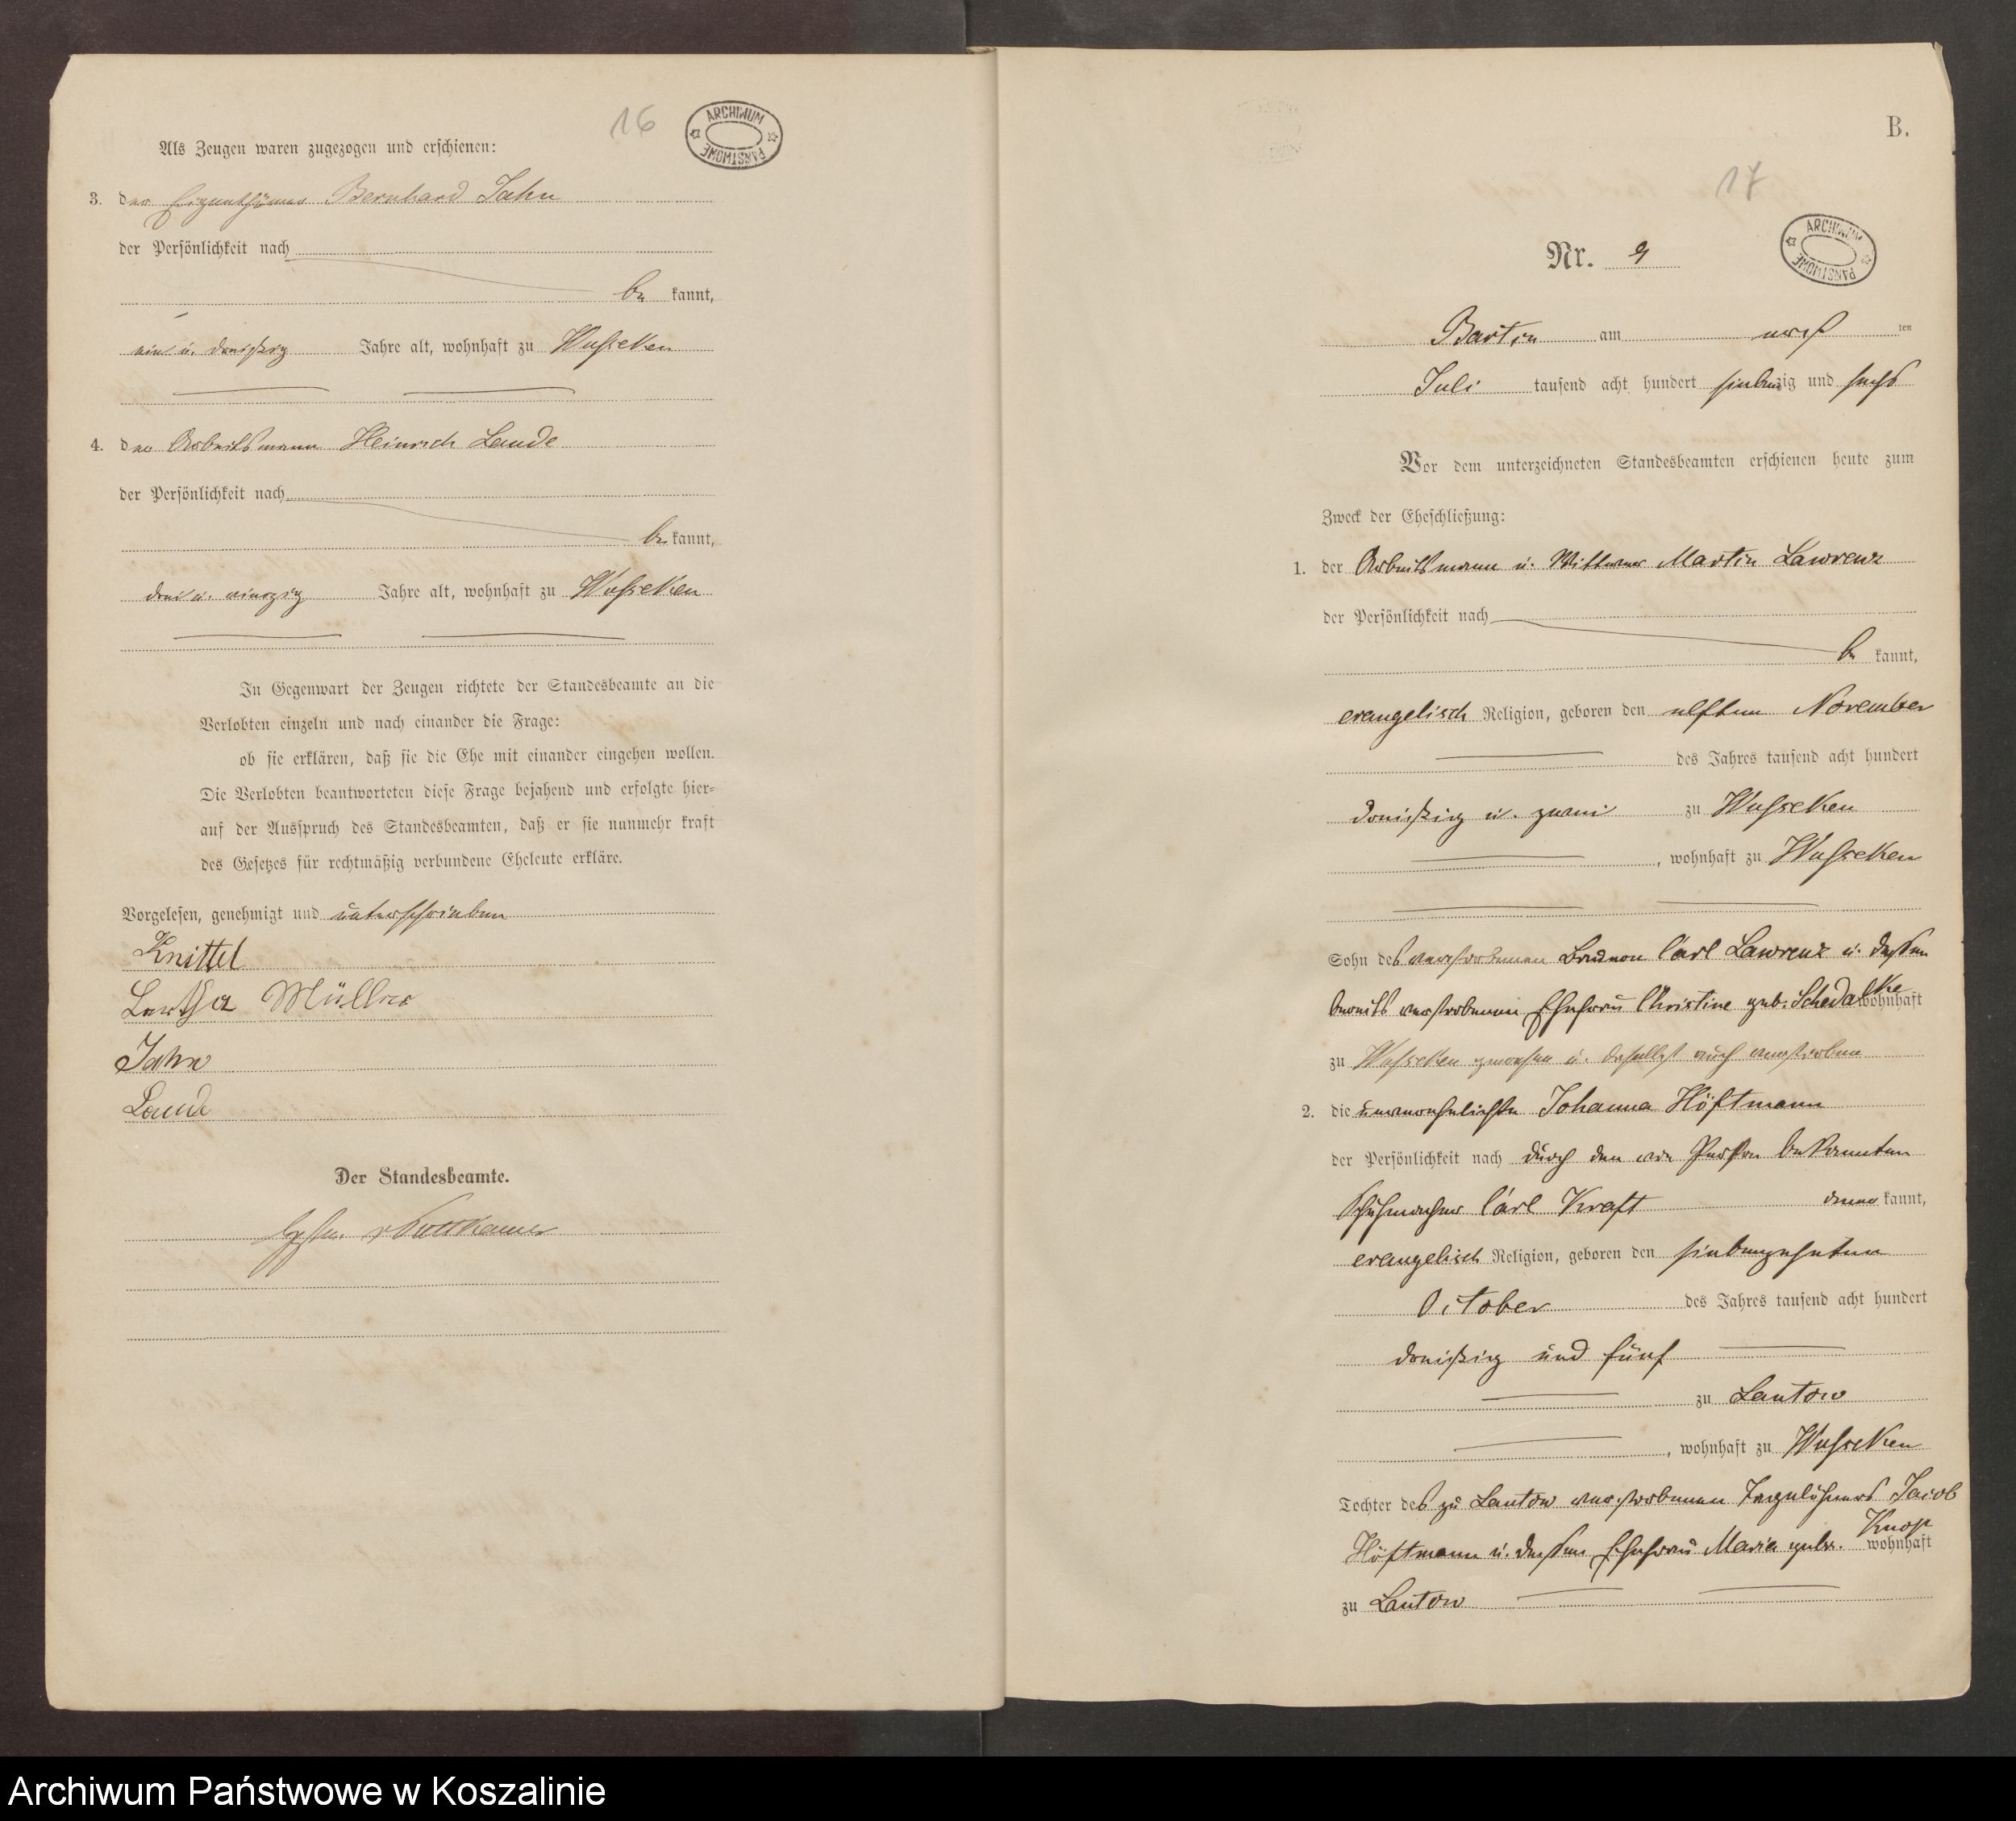 16
ARCHIWUM PAŃSTWOWE
Als Zeugen waren zugezogen und erschienen:
3. der Eigenthümer Bernhard Jahn
der Persönlichkeit nach
be kannt,
ein u. dreißig Jahre alt, wohnhaft zu Wusseken
4. der Arbeitsmann Heinrich Laude
der Persönlichkeit nach
be kannt,
drei u. vierzig Jahre alt, wohnhaft zu Wusseken
In Gegenwart der Zeugen richtete der Standesbeamte an die
Verlobten einzeln und nach einander die Frage:
ob sie erklären, daß sie die Ehe mit einander eingehen wollen.
Die Verlobten beantworteten diese Frage bejahend und erfolgte hier-
auf der Ausspruch des Standesbeamten, daß er sie nunmehr kraft
des Gesetzes für rechtmäßig verbundene Eheleute erkläre.
Vorgelesen, genehmigt und unterschrieben
Knittel
Müller
Jahn
Laude
Der Standesbeamte.
B.
17
ARCHIWUM PAŃSTWOWE
Nr. 9
Bartin am ten
Juli tausend acht hundert siebenzig und sechs
Vor dem unterzeichneten Standesbeamten erschienen heute zum
Zweck der Eheschließung:
1. der Arbeitsmann u. Wittwer Martin Lawrenz
der Persönlichkeit nach
be kannt,
evangelisch Religion, geboren den elften November
des Jahres tausend acht hundert
dreißig u. zwei zu Wusseken
, wohnhaft zu Wusseken
Sohn des verstorbenen Carl Lawrenz u. dessen
bereits verstorbenen Ehefrau Christine geb. Schedalke wohnhaft
zu Wusseken gewesen u. daselbst auch verstorben
2. die unverehelichte Johanna Höftmann
der Persönlichkeit nach durch den von Person bekannten
Schuhmacher Carl Kraft aner kannt,
evangelisch Religion, geboren den siebenzehnten
October des Jahres tausend acht hundert
dreißig und fünf
zu Lantow
, wohnhaft zu Wusseken
Tochter des zu Lantow verstorbenen Tagelöhners Jacob
Höftmann u. dessen Ehefrau Maria geb. Knop wohnhaft
zu Lantow
Archiwum Państwowe w Koszalinie